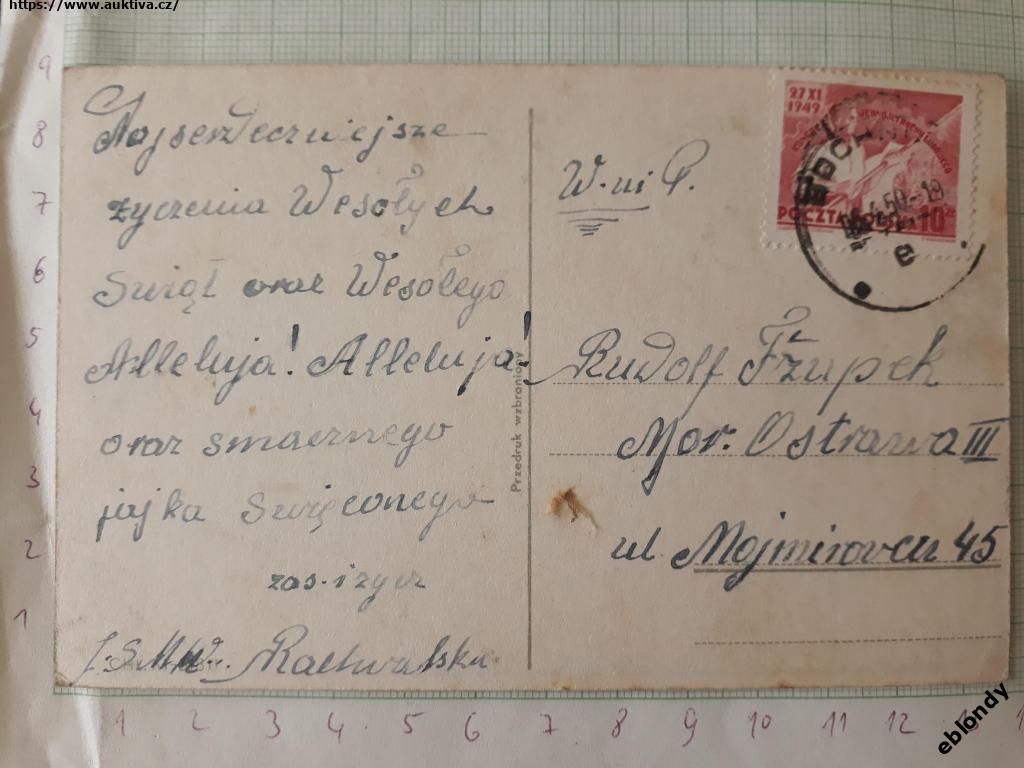 https://www.auktiva.cz/
Najserdeczniejsze
życzenia Wesołych
Swiąt oraz Wesołego
Alleluja! Alleluja!
oraz smacznego
jajka Swięconego
zas. i życz
Przedruk wzbroniony
W. ni P.
Rudolf
Mor. Ostrawa III
ul Mojmirovcu 45
27 XI
1949
POCZTA
10
9
8
7
6
5
4
3
2
1
1 2 3 4 5 6 7 8 9 10 11 12 13
eblondy